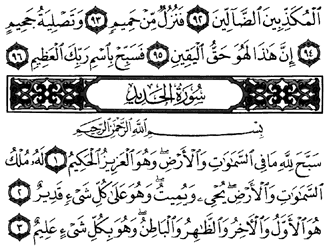 ٱلْمُكَذِّبِينَ ٱلضَّآلِّينَ ٩٢ فَنُزُلٌ مِّنْ حَمِيمٍ ٩٣ وَتَصْلِيَةُ جَحِيمٍ
٩٤ إِنَّ هَٰذَا لَهُوَ حَقُّ ٱلْيَقِينِ ٩٥ فَسَبِّحْ بِٱسْمِ رَبِّكَ ٱلْعَظِيمِ ٩٦
سُورَةُ الحَدِيدِ
بِسْمِ ٱللَّهِ ٱلرَّحْمَٰنِ ٱلرَّحِيمِ
سَبَّحَ لِلَّهِ مَا فِى ٱلسَّمَٰوَٰتِ وَٱلْأَرْضِ ۖ وَهُوَ ٱلْعَزِيزُ ٱلْحَكِيمُ ١ لَهُۥ مُلْكُ
ٱلسَّمَٰوَٰتِ وَٱلْأَرْضِ ۖ يُحْىِۦ وَيُمِيتُ ۖ وَهُوَ عَلَىٰ كُلِّ شَىْءٍ قَدِيرٌ ٢
هُوَ ٱلْأَوَّلُ وَٱلْـَٔاخِرُ وَٱلظَّٰهِرُ وَٱلْبَاطِنُ ۖ وَهُوَ بِكُلِّ شَىْءٍ عَلِيمٌ ٣